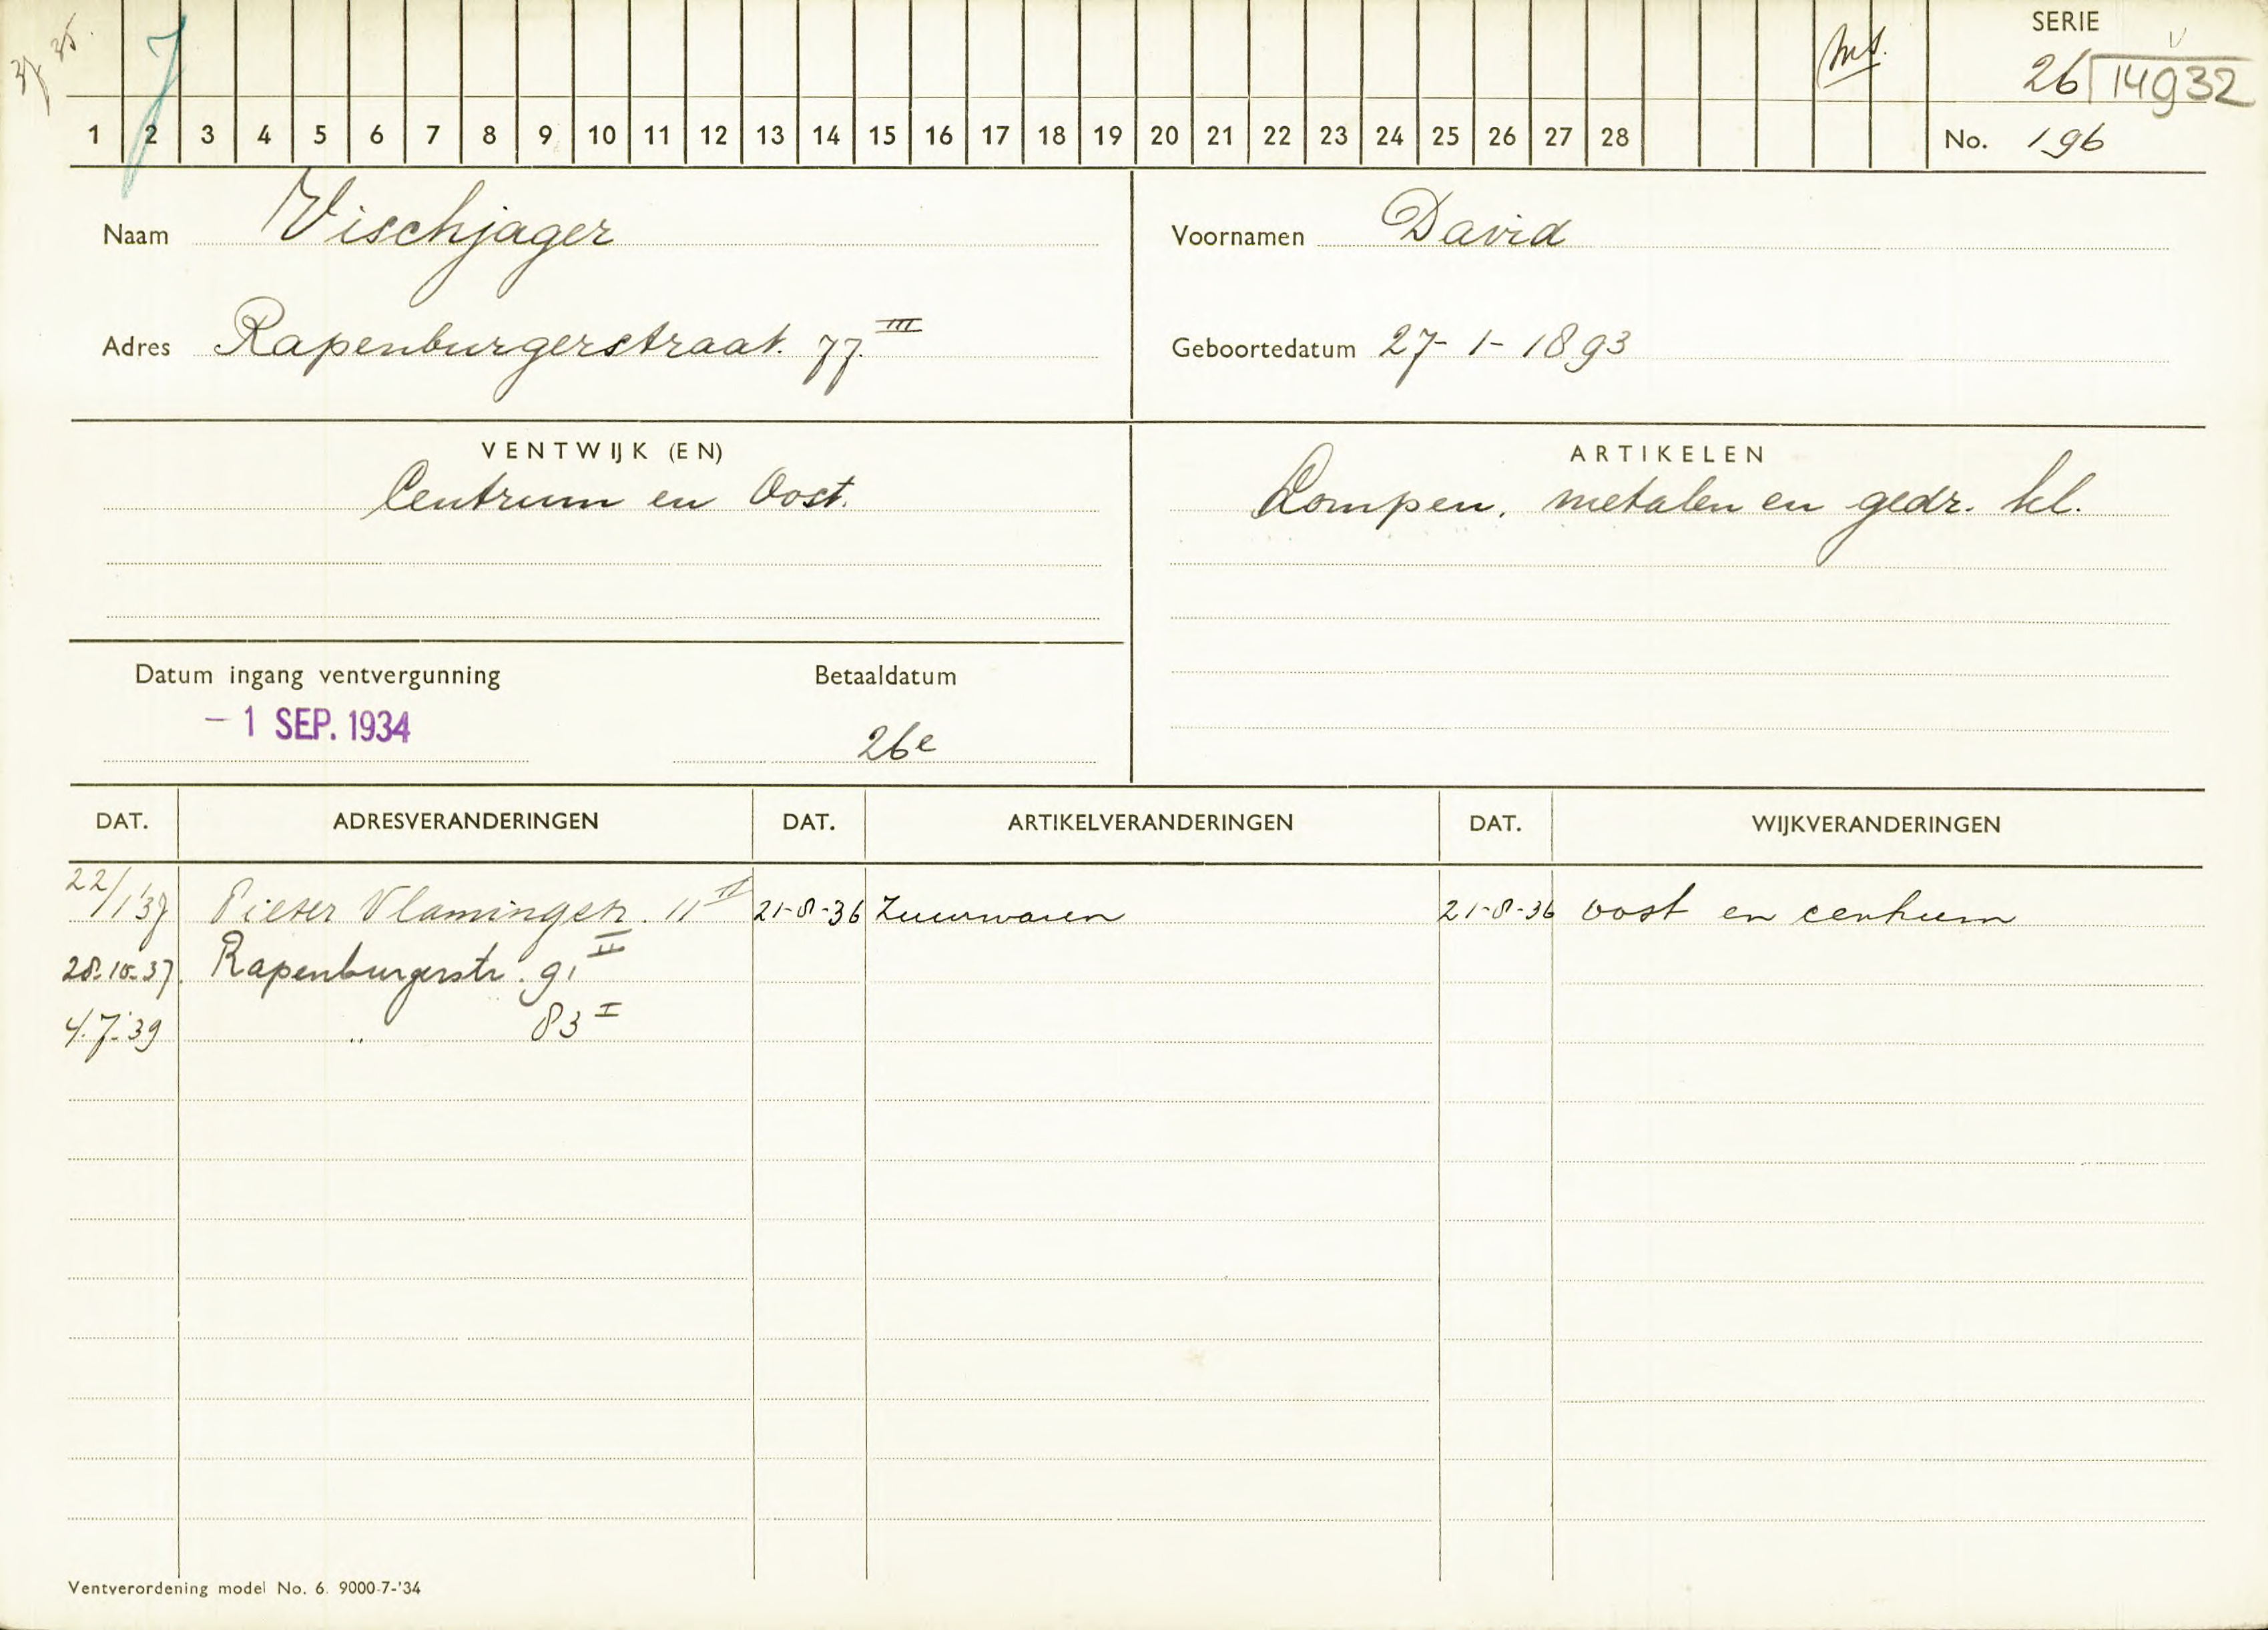 37 35.
J
Int.
SERIE
26 14932
1 2 3 4 5 6 7 8 9 10 11 12 13 14 15 16 17 18 19 20 21 22 23 24 25 26 27 28
No. 196
Naam Vischjager
Voornamen David
Adres Rapenburgerstraat. 77 III
Geboortedatum 27-1-1893
VENTWIJK (EN)
Centrum en Oost.
ARTIKELEN
Lompen, metalen en gedr. kl.
Datum ingang ventvergunning
Betaaldatum
-1 SEP. 1934
26e
DAT. ADRESVERANDERINGEN DAT. ARTIKELVERANDERINGEN DAT. WIJKVERANDERINGEN
22/1'37 Pieter Vlamingstr. 11 II 21-8-36 Zuurwaren 21-8-36 oost en centrum
28-10-37. Rapenburgerstr. 91 II
4.7.'39 „ 83 I
Ventverordening model No. 6. 9000-7-'34